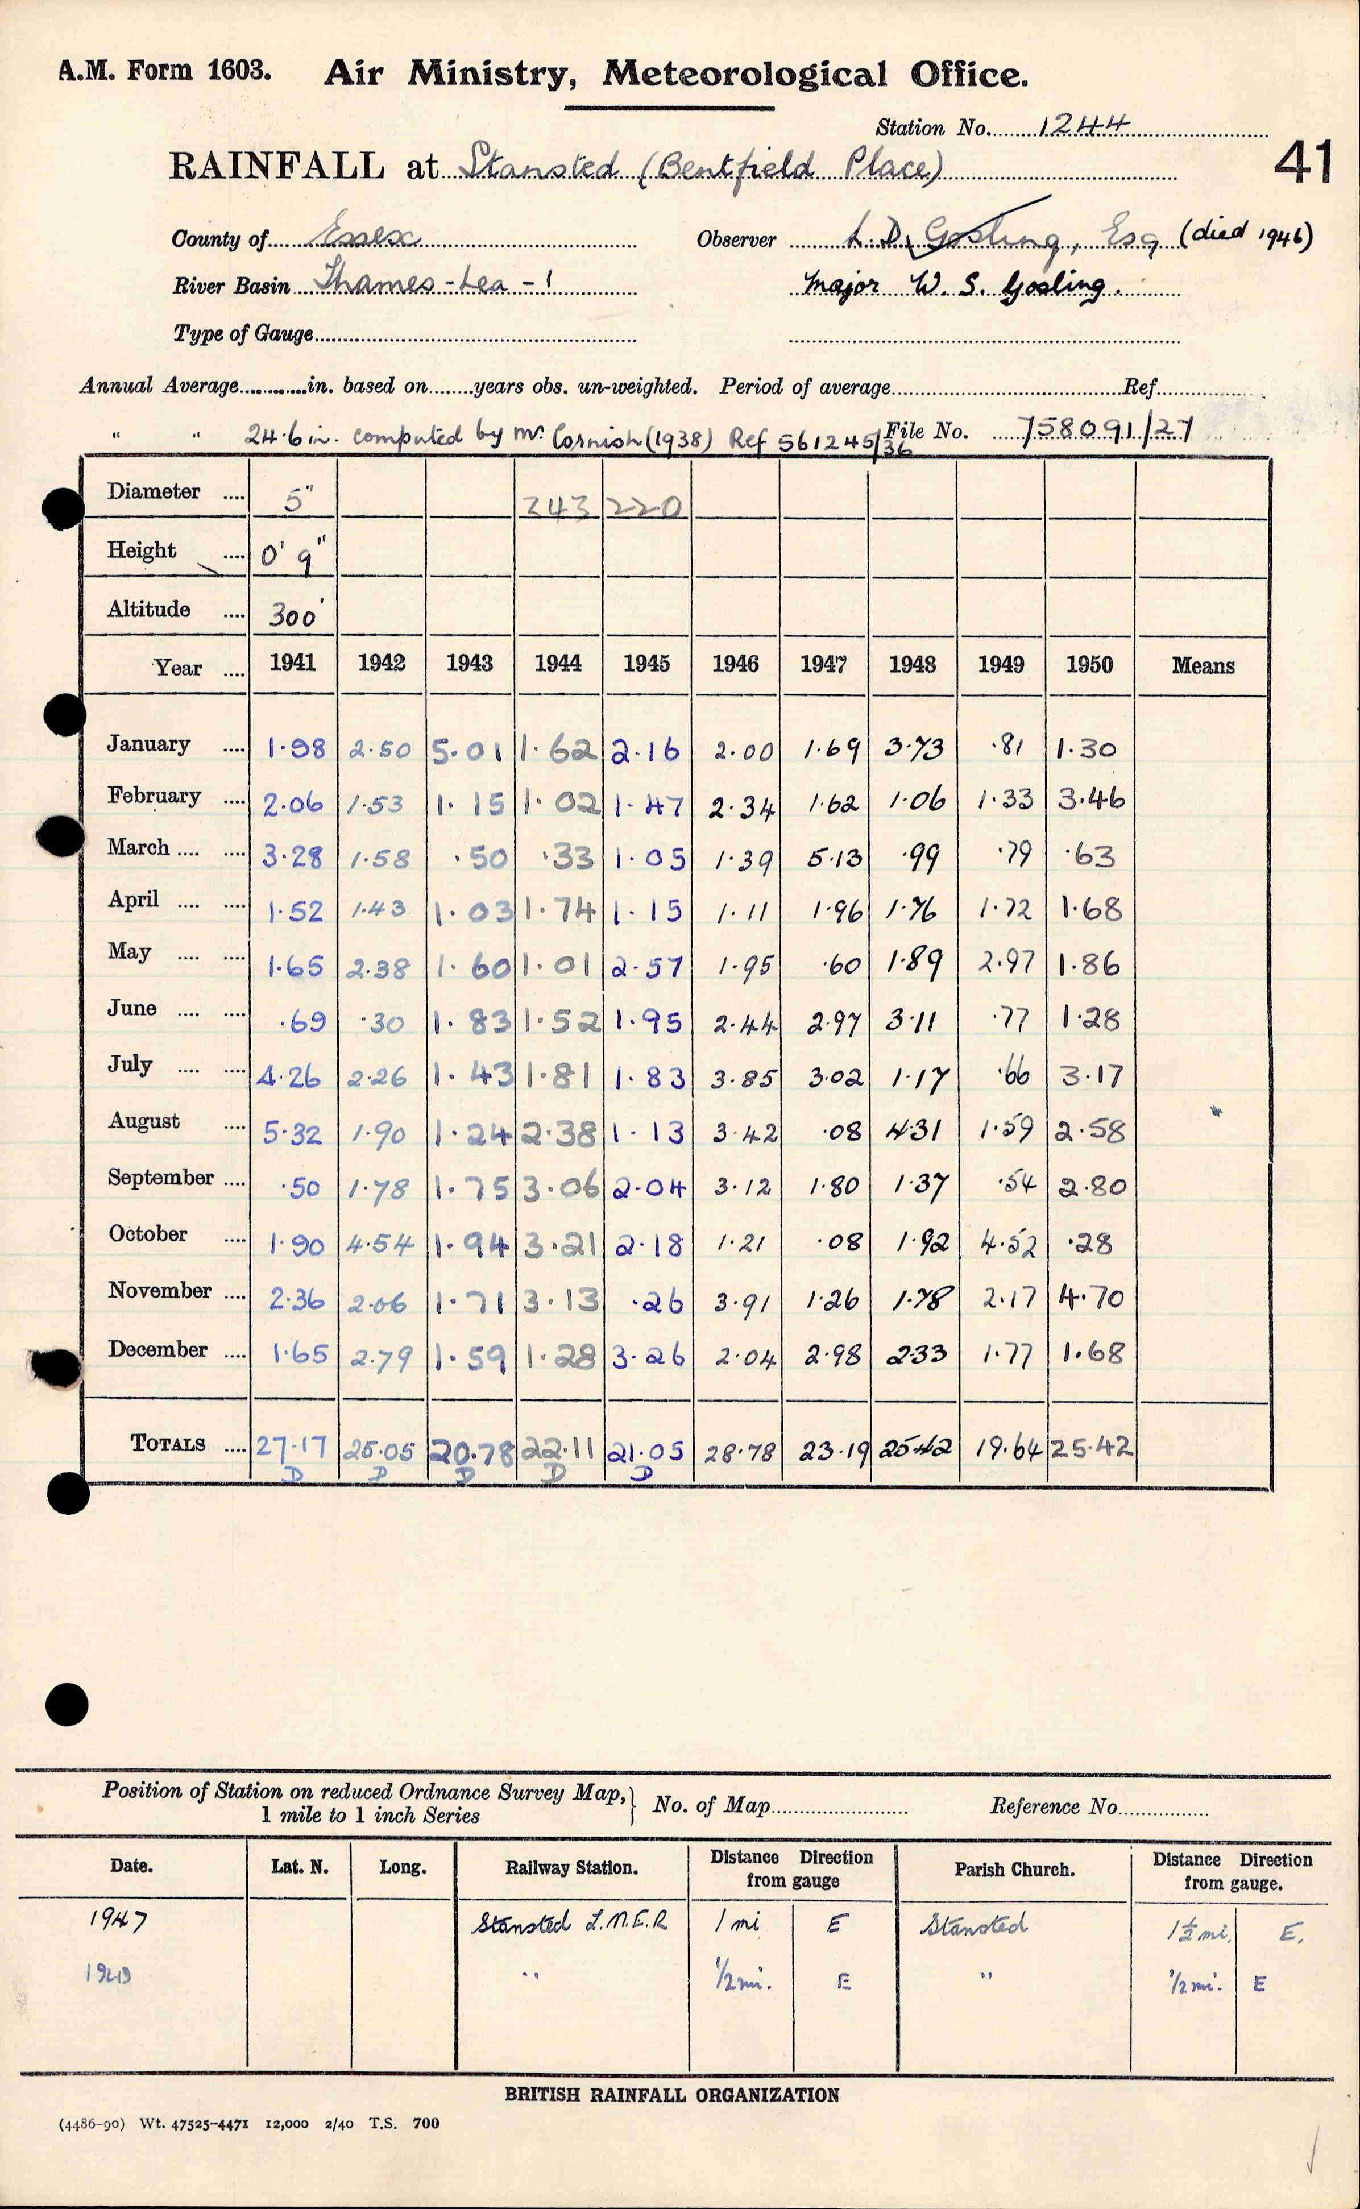 A.M. Form 1603. Air Ministry, Meteorological Office.
Station No. 1244
41
RAINFALL at Stansted (Bentfield Place)
County of Essex Observer L. D. Gosling, Esq (died 1946)
River Basin Thames - Lea - 1 Major W. S. Gosling.
Type of Gauge
Annual Average in. based on years obs. un-weighted. Period of average Ref
" " 24.6 in. computed by Mr Cornish (1938) Ref 561245/36 File No. 758091/27
Diameter 5" 243 220
Height 0' 9"
Altitude 300'
Year 1941 1942 1943 1944 1945 1946 1947 1948 1949 1950 Means
January 1.98 2.50 5.01 1.62 2.16 2.00 1.69 3.73 .81 1.30
February 2.06 1.53 1.15 1.02 1.47 2.34 1.62 1.06 1.33 3.46
March 3.28 1.58 .50 .33 1.05 1.39 5.13 .99 .79 .63
April 1.52 1.43 1.03 1.74 1.15 1.11 1.96 1.76 1.72 1.68
May 1.65 2.38 1.60 1.01 2.57 1.95 .60 1.89 2.97 1.86
June .69 .30 1.83 1.52 1.95 2.44 2.97 3.11 .77 1.28
July 4.26 2.26 1.43 1.81 1.83 3.85 3.02 1.17 .66 3.17
August 5.32 1.90 1.24 2.38 1.13 3.42 .08 4.31 1.59 2.58
September .50 1.78 1.75 3.06 2.04 3.12 1.80 1.37 .54 2.80
October 1.90 4.54 1.94 3.21 2.18 1.21 .08 1.92 4.52 .28
November 2.36 2.06 1.71 3.13 .26 3.91 1.26 1.78 2.17 4.70
December 1.65 2.79 1.59 1.28 3.26 2.04 2.98 2.33 1.77 1.68
TOTALS 27.17 25.05 20.78 22.11 21.05 28.78 23.19 25.42 19.64 25.42
D D D D D
Position of Station on reduced Ordnance Survey Map, 1 mile to 1 inch Series } No. of Map Reference No.
Date. Lat. N. Long. Railway Station. Distance Direction from gauge Parish Church. Distance Direction from gauge.
1947 Stansted L.N.E.R 1 mi E Stansted 1½ mi. E.
" ½ mi. E " ½ mi. E
BRITISH RAINFALL ORGANIZATION
(4486-90) Wt. 47525-4471 12,000 2/40 T.S. 700